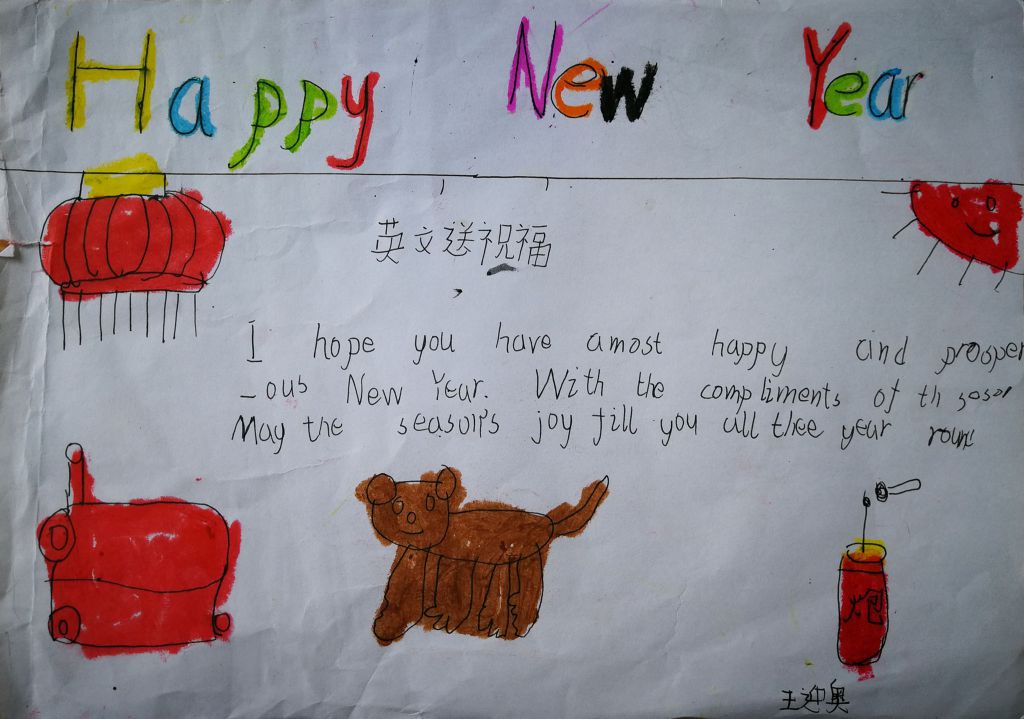 Happy New Year
英文送祝福
I hope you have amost happy and prosper
-ous New Year. With the compliments of th seson
May the season's joy fill you all thee year round
炮
王迎奥